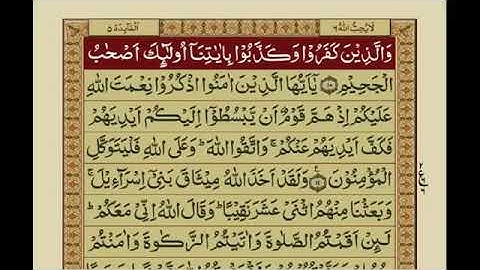 لَا يُحِبُّ اللّٰهُ ٦ اَلْمَآئِدَة ٥
وَالَّذِيْنَ كَفَرُوْا وَكَذَّبُوْا بِاٰيٰتِنَاۤ اُولٰٓئِكَ اَصْحٰبُ
الْجَحِيْمِ ۝۱۰ يٰۤاَيُّهَا الَّذِيْنَ اٰمَنُوا اذْكُرُوْا نِعْمَتَ اللّٰهِ
عَلَيْكُمْ اِذْ هَمَّ قَوْمٌ اَنْ يَّبْسُطُوْۤا اِلَيْكُمْ اَيْدِيَهُمْ
فَكَفَّ اَيْدِيَهُمْ عَنْكُمْ ۚ وَاتَّقُوا اللّٰهَ ؕ وَعَلَى اللّٰهِ فَلْيَتَوَكَّلِ
الْمُؤْمِنُوْنَ ۝۱۱ وَلَقَدْ اَخَذَ اللّٰهُ مِيْثَاقَ بَنِيْۤ اِسْرَآءِيْلَ ۚ
وَبَعَثْنَا مِنْهُمُ اثْنَيْ عَشَرَ نَقِيْبًا ؕ وَقَالَ اللّٰهُ اِنِّيْ مَعَكُمْ ؕ
لَئِنْ اَقَمْتُمُ الصَّلٰوةَ وَاٰتَيْتُمُ الزَّكٰوةَ وَاٰمَنْتُمْ